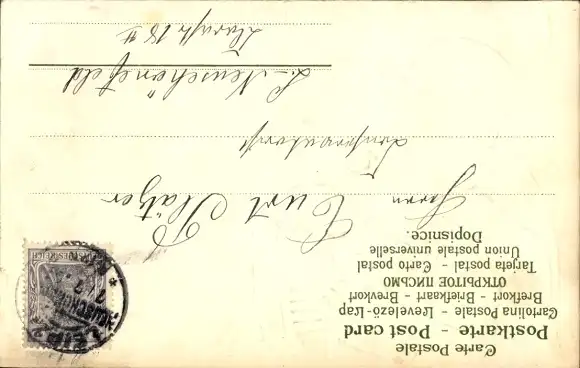 Carte Postale
Postkarte - Post card
Cartolina Postale - Levelezö-Lap
Brefkort - Briefkaart - Brevkort
ОТКРЫТОЕ ПИСЬМО
Tarjeta postal - Carto postal
Union postale universelle
Dopisnice.
Herrn
Curt Plätzer
L.-Neuschönefeld
18 II